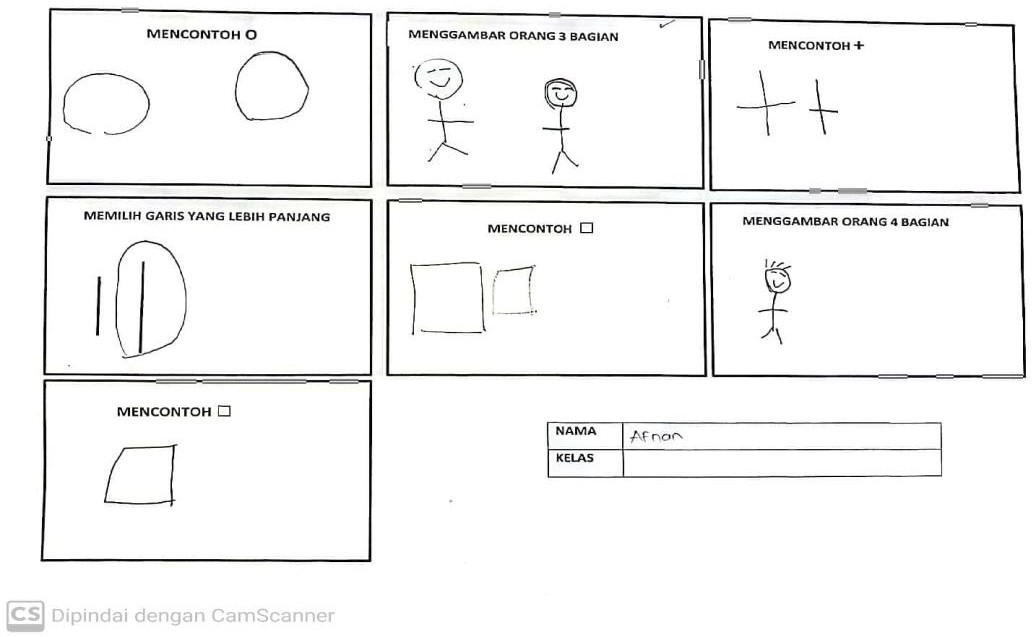 MENCONTOH O
MENGGAMBAR ORANG 3 BAGIAN
MENCONTOH +
MEMILIH GARIS YANG LEBIH PANJANG
MENCONTOH □
MENGGAMBAR ORANG 4 BAGIAN
MENCONTOH □
NAMA Afnan
KELAS
CS Dipindai dengan CamScanner